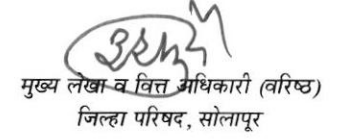 मुख्य लेखा व वित्त अधिकारी (वरिष्ठ)
जिल्हा परिषद, सोलापूर